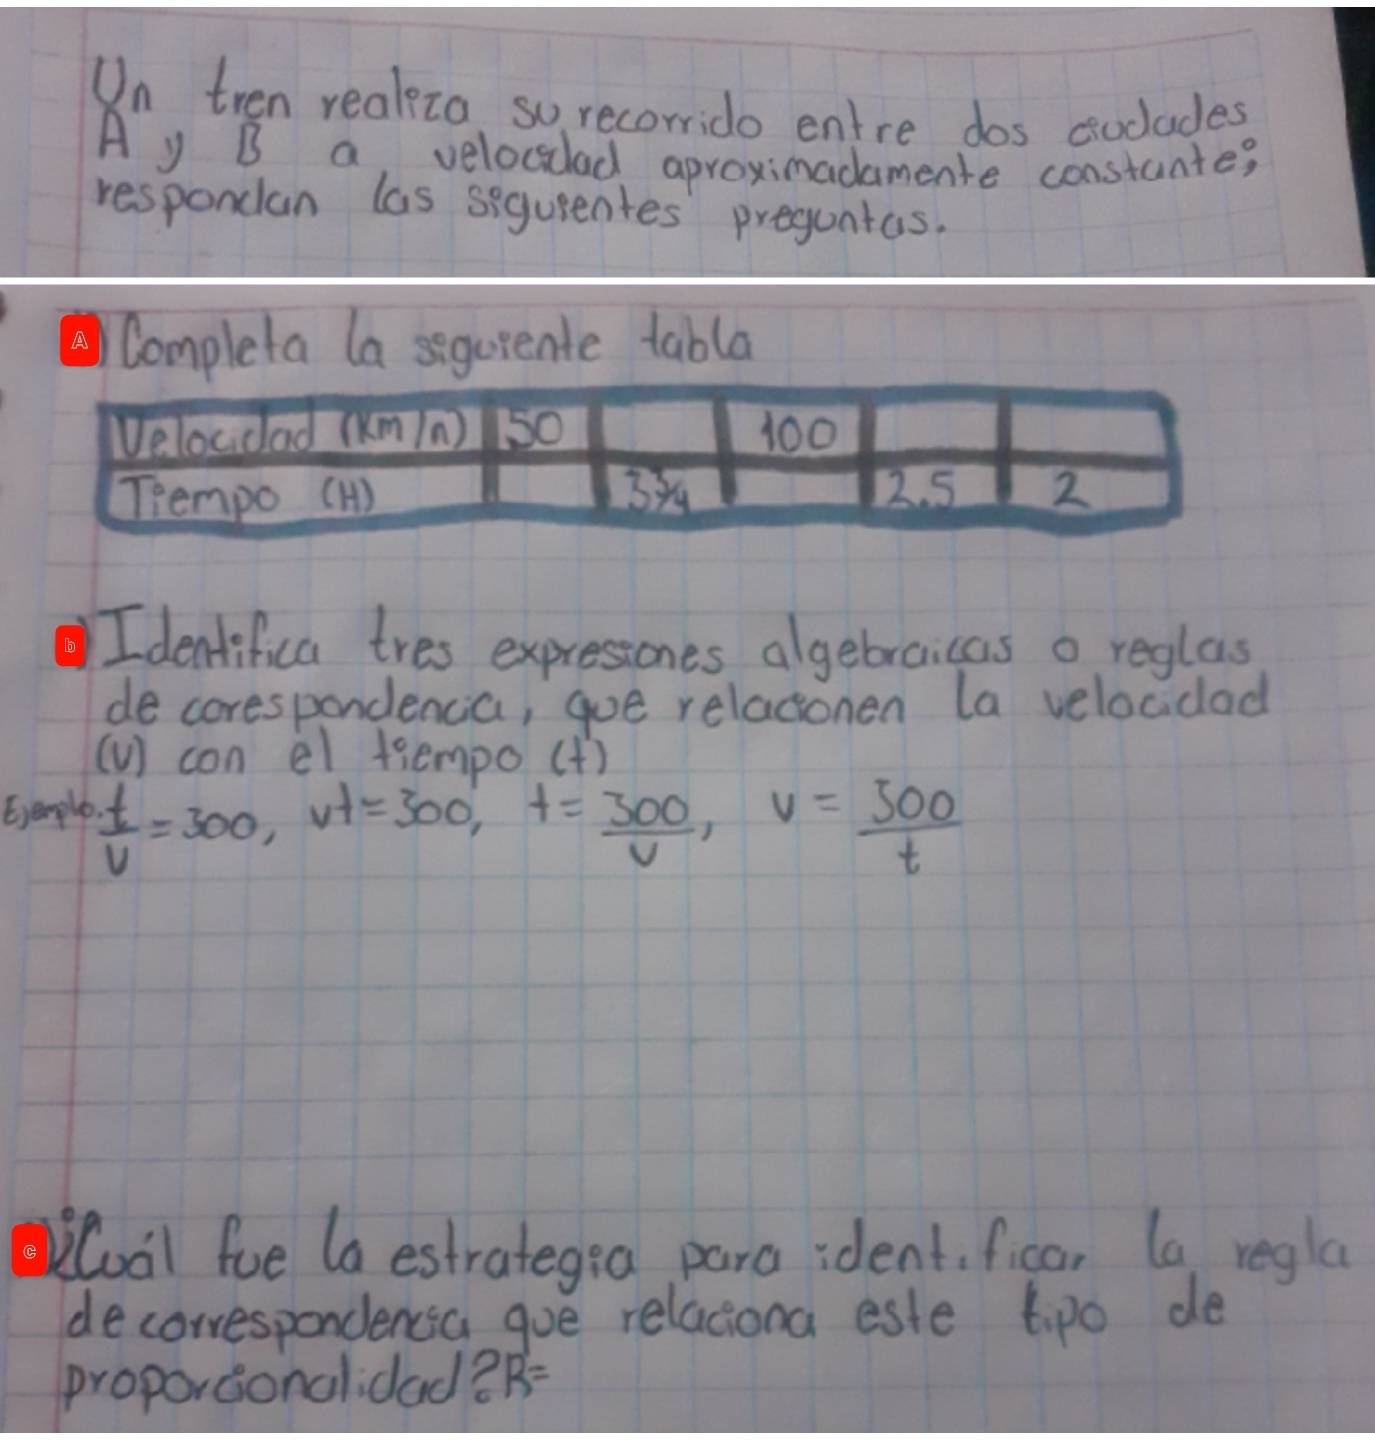 Un tren realiza su recorrido entre dos ciudades
A y B a velocidad aproximadamente constante;
respondan las siguientes preguntas.
A) Completa la siguiente tabla
Velocidad (Km/h) 50 100
Tiempo (H) 3 3/4 2.5 2
b) Identifica tres expresiones algebraicas o reglas
de corespondencia, que relacionen la velocidad
(v) con el tiempo (t)
Ejemplo. t/v = 300, vt = 300, t = 300/v, v = 300/t
c) ¿Cuál fue la estrategia para identificar la regla
de correspondencia que relaciona este tipo de
proporcionalidad? R=